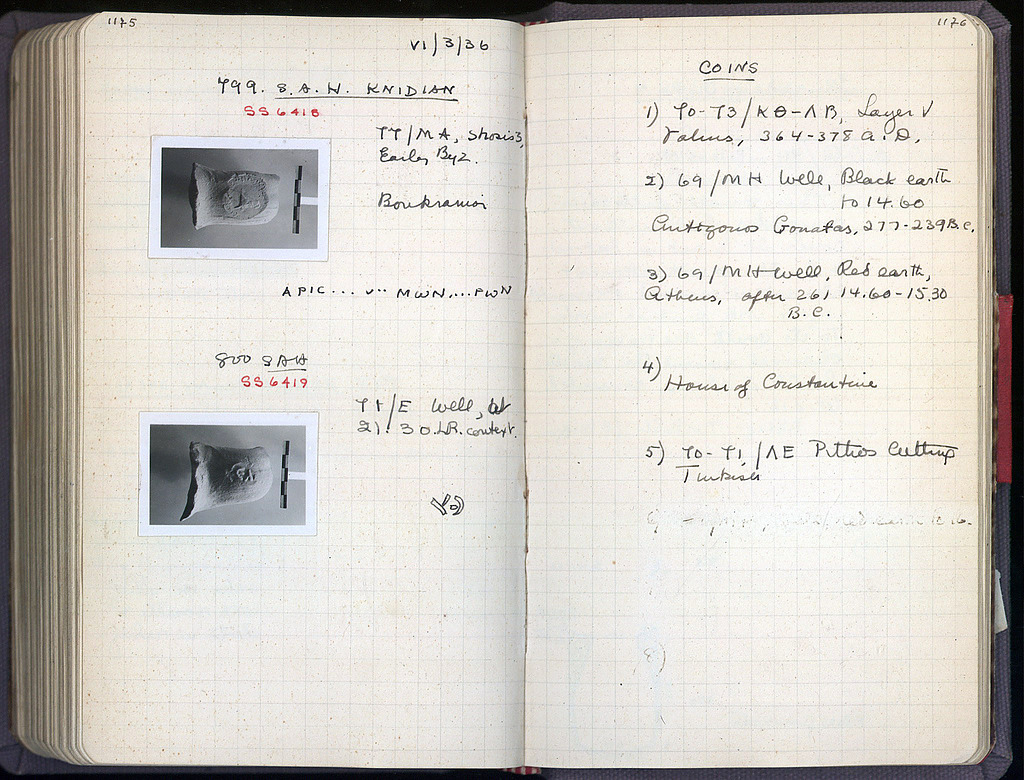 1175
VI/3/36
799. S.A.H. KNIDIAN
SS 6418
77/MA, Stosis 3,
Early Byz.
Boukranion
ΑΡΙC... υ.. ΜωΝ....ΡωΝ
800 SAH
SS 6419
71/E Well, at
21.30 LR. context.
1176
COINS
1) 70-73/ΚΘ-ΛΒ, Layer V
Valens, 364-378 A.D.
2) 69/ΜΗ Well, Black earth
to 14.60
Antigonos Gonatas, 277-239 B.C.
3) 69/ΜΗ Well, Red earth,
Athens, after 261 14.60-15.30
B.C.
4)
House of Constantine
5) 70-71/ΛΕ Pithos Cutting
Turkish
8)